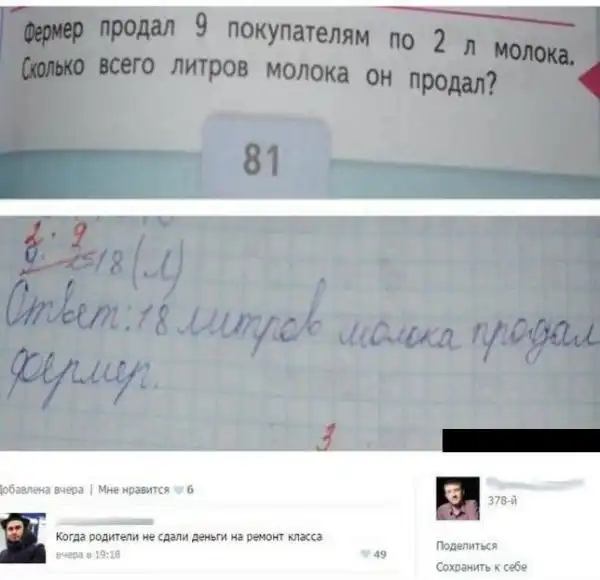 Фермер продал 9 покупателям по 2 л молока.
Сколько всего литров молока он продал?
81
2 · 9
9 · 2=18 (л)
Ответ: 18 литров молока продал
фермер.
3
Добавлена вчера | Мне нравится 6
Когда родители не сдали деньги на ремонт класса
вчера в 19:18
49
378-й
Поделиться
Сохранить к себе